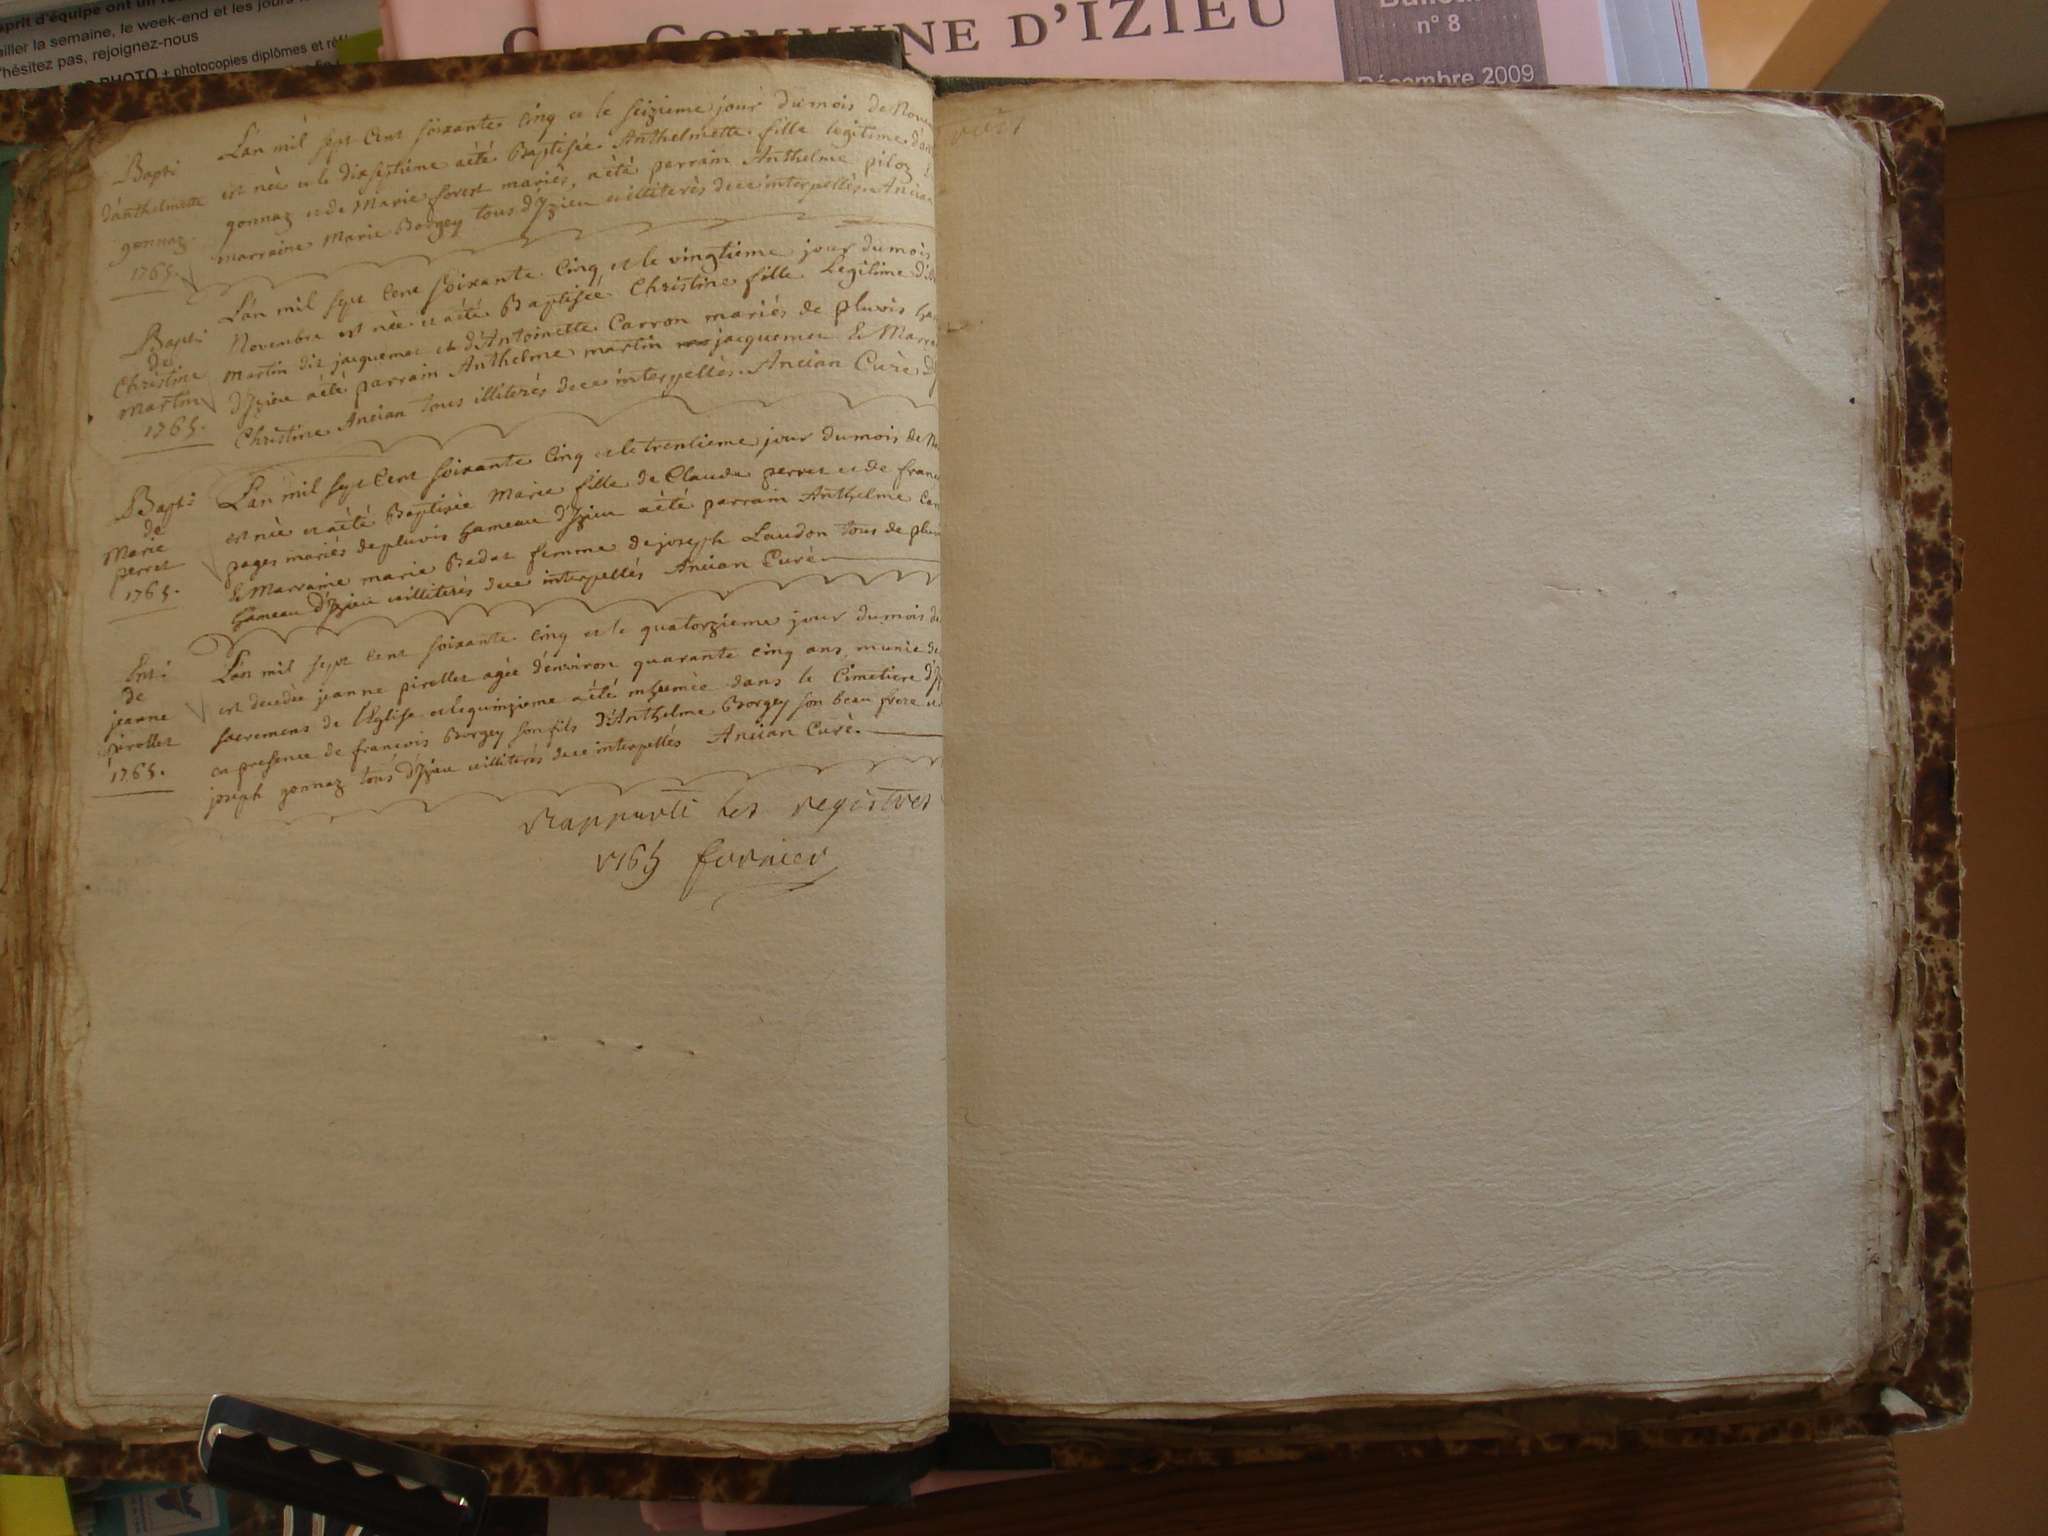 esprit d'équipe ont un
iller la semaine, le week-end et les jours
'hésitez pas, rejoignez-nous
PHOTO + photocopies diplômes et
COMMUNE D'IZIEU
Bulletin
n° 8
Décembre 2009
Bapt:
d'anthelmette
gonnaz
1765.
L'an mil sept cent soixante cinq et le seizieme jour du mois de Nove
est née et le dixseptième a été Baptisée Anthelmette fille legitime d'an
gonnaz et de Marie forest mariés, a été parrain Anthelme piloz
marraine Marie Borgey tous d'Izieu et illiterés de ce interpellés Ancian
Bapt:
de
Christine
Martin
1765.
L'an mil sept cent soixante cinq et le vingtieme jour du mois
Novembre est née et a été Baptisée Christine fille Legitime d'
Martin dit jacquemet et d'Antoinette Carron mariés de pluvis ha
d'Izieu a été parrain Anthelme martin jacquemet & Marra
Christine Ancian tous illiterés de ce interpellés Ancian Curé
Bapt:
de
Marie
perret
1765.
L'an mil sept cent soixante cinq et le trentieme jour du mois de No
est née et a été Baptisée Marie fille de Claude perret et de fran
pages mariés de pluvis hameau d'Izieu a été parrain Anthelme Car
& Marraine marie Badat femme de joseph Laudon tous de pluv
hameau d'Izieu et illiterés de ce interpellés Ancian Curé
Ent:
de
jeanne
pirollet
1765.
L'an mil sept cent soixante cinq et le quatorzieme jour du mois de
est decedée jeanne pirollet agée d'environ quarante cinq ans munie de
sacremens de l'Eglise et le quinzieme a été inhumée dans le Cimetiere d'I
en presence de francois Borgey son fils d'Anthelme Borgey son beau frere et
joseph gonnaz tous d'Izieu et illiterés de ce interpellés Ancian Curé.
Rapporté les registres
1765 fornier